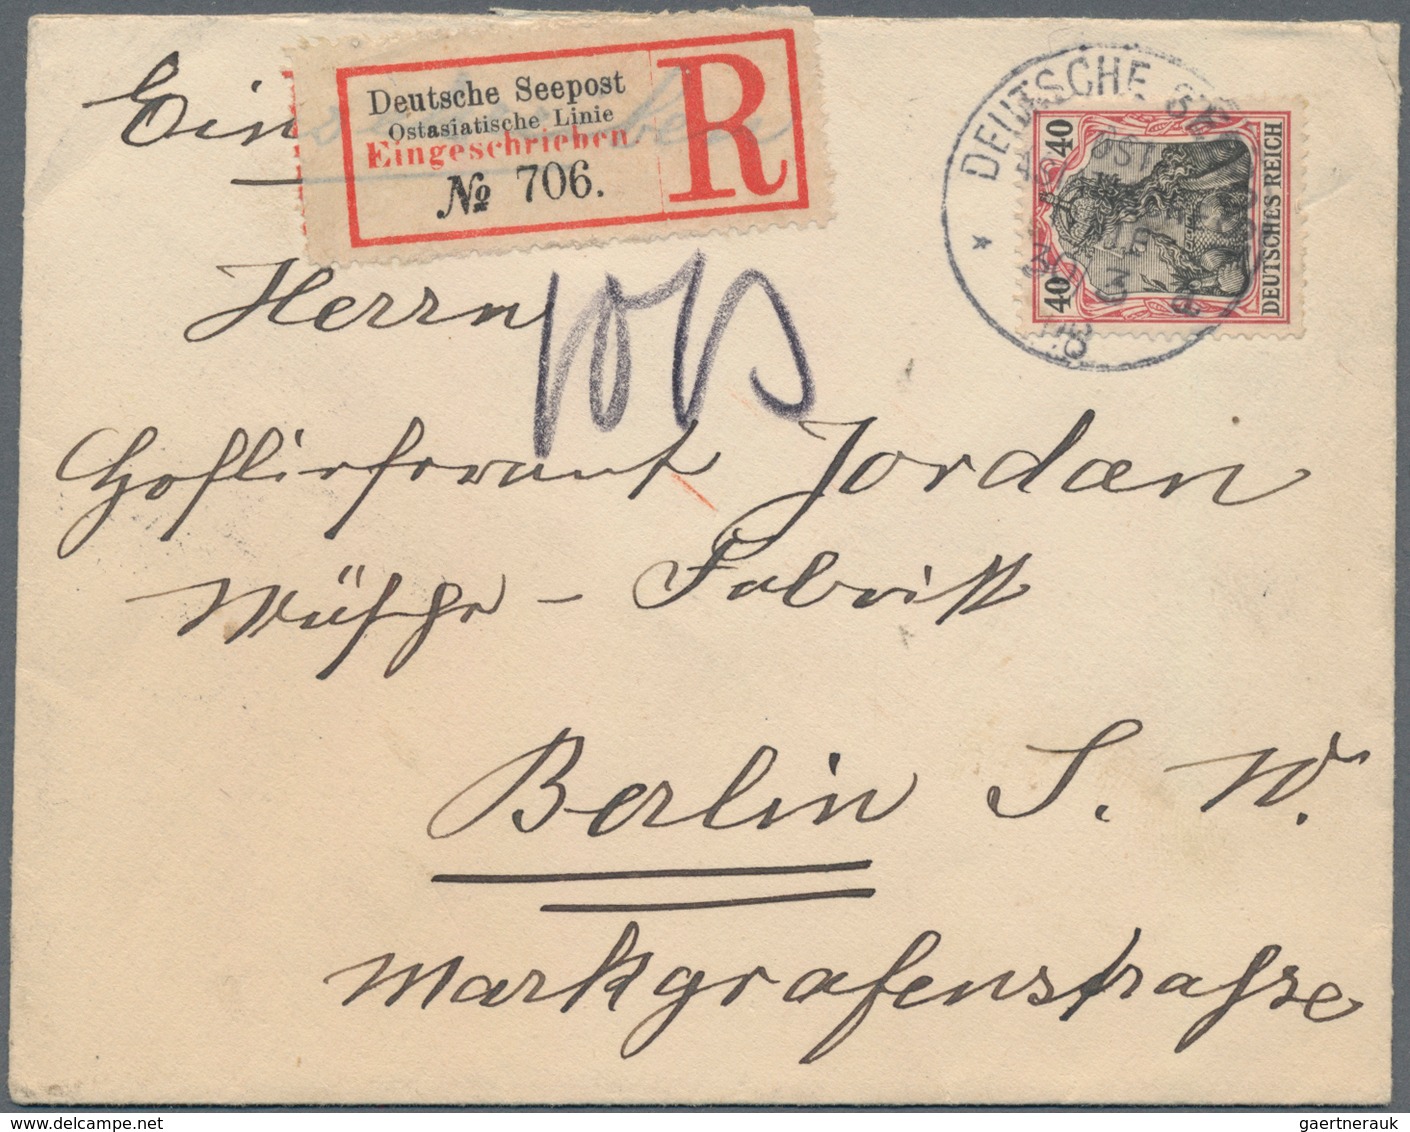 Ein
Deutsche Seepost
Ostasiatische Linie
Eingeschrieben.
№ 706.
R
DEUTSCHE SEE
OST
30 3
08
40 40
DEUTSCHES REICH
Herrn
Hoflieferant Jordan
Wäsche - Fabrik
Berlin S. W.
Markgrafenstraße
gaertnerauk